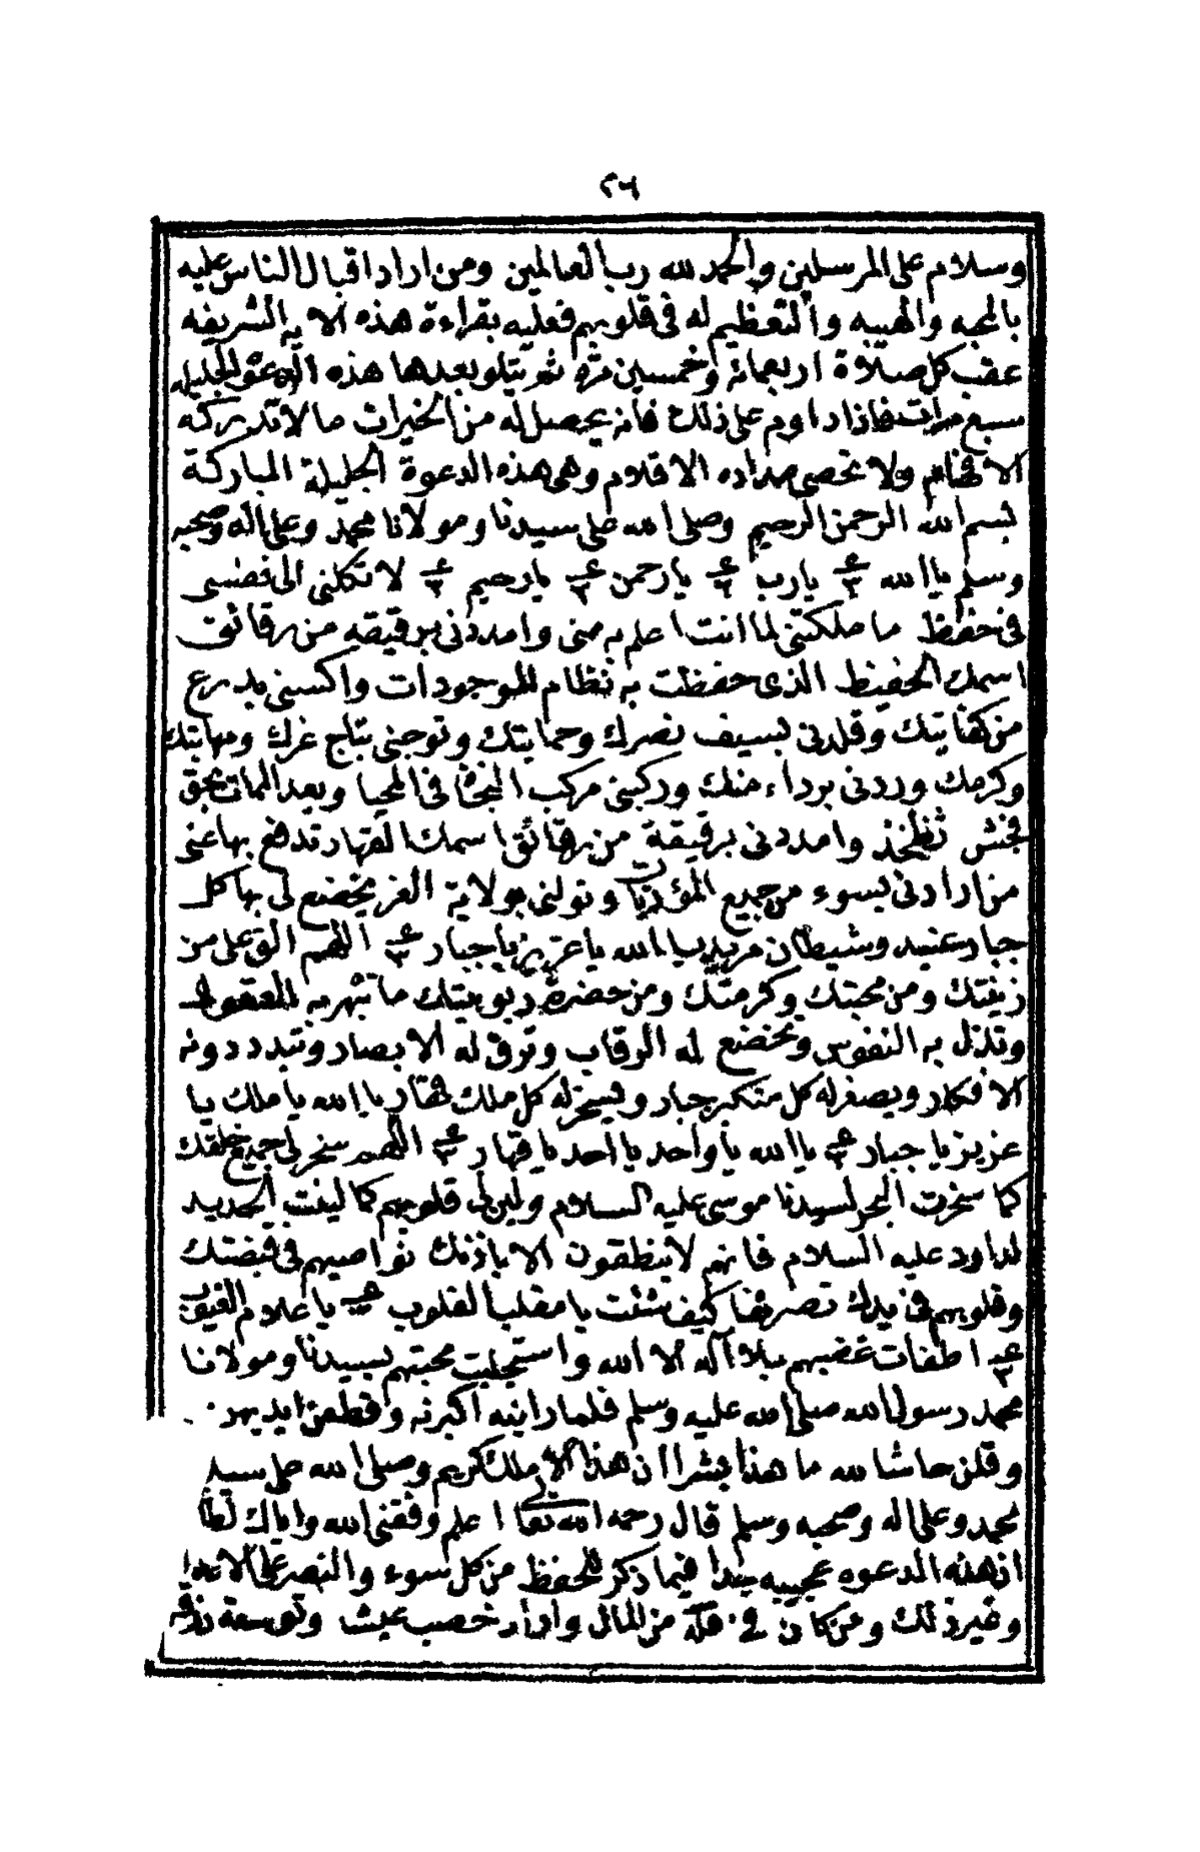 ٢٦
وسلام على المرسلين والحمد لله رب العالمين ومن اراد اقبال الناس عليه
بالمحبه والهيبه والتعظيم له فى قلوبهم فعليه بقراءة هذه الايه الشريفه
عقب كل صلاة اربعمائه وخمسين مره ثم يتلو بعدها هذه الدعوة الجليله
سبع مرات فاذا داوم على ذلك فانه يحصل له من الخيرات ما لا تدركه
الافهام ولا تحصى مداده الاقلام وهى هذه الدعوة الجليلة المباركة
بسم الله الرحمن الرحيم وصلى الله على سيدنا ومولانا محمد وعلى اله وصحبه
وسلم يا الله ع٣ يارب ع٣ يارحمن ع٣ يارحيم ع٣ لا تكلنى الى نفسى
فى حفظ ما ملكتنى لما انت اعلم به منى وامددنى برقيقه من رقائق
اسمك الحفيظ الذى حفظت به نظام الموجودات واكسنى بدرع
من كفايتك وقلدنى بسيف نصرك وحمايتك وتوجنى بتاج عزك ومهابتك
وكرمك وردنى برداء منك وركبنى مركب النجاة فى المحيا وبعد الممات بحق
فجش ثظخذ وامددنى برقيقة من رقائق اسمك القهار تدفع بها عنى
من ارادنى بسوء من جميع المؤذيات وتولنى بولاية العز يخضع لى بها كل
جبار عنيد وشيطان مريد يا الله يا عزيز يا جبار ع٣ اللهم الق على من
زينتك ومن محبتك وكرمتك ومن حضرة ربوبيتك ما تبهر به العقول
وتذل به النفوس وتخضع له الرقاب وترق له الابصار وتتبدد دونه
الافكار ويصغر له كل متكبر جبار ويسخر له كل ملك قهار يا الله يا ملك يا
عزيز يا جبار ع٣ يا الله يا واحد يا احد يا قهار ع٣ اللهم سخر لى جميع خلقك
كما سخرت البحر لسيدنا موسى عليه السلام ولين لى قلوبهم كما لينت الحديد
لداود عليه السلام فانهم لا ينطقون الا باذنك نواصيهم فى قبضتك
وقلوبهم فى يدك تصرفها كيف شئت يا مقلب القلوب يا علام الغيوب
ع٣ اطفات غضبهم بلا اله الا الله واستجلبت محبتهم بسيدنا ومولانا
محمد رسول الله صلى الله عليه وسلم فلما راينه اكبرنه وقطعن ايديهن
وقلن حاشا لله ما هذا بشرا ان هذا الا ملك كريم وصلى الله على سيد
محمد وعلى اله وصحبه وسلم قال رحمه الله تعالى اعلم وفقنى الله واياك
ان هذه الدعوه عجيبه جدا فيما ذكر للحفظ من كل سوء والنصر على الاعدا
وغير ذلك ومن كان فى قلة من المال واراد خصب عيش وتوسعة رزق